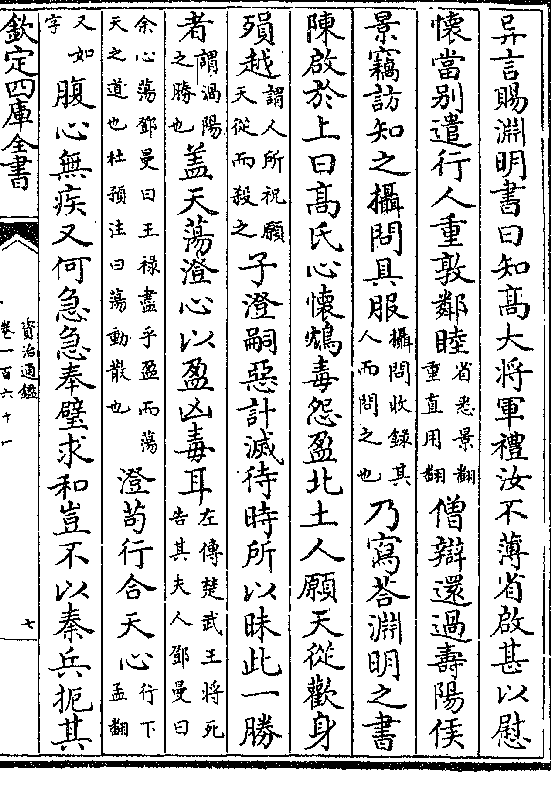 异言賜淵明書曰知髙大將軍禮汝不薄省啟甚以慰
懷當别遣行人重敦鄰睦
省悉景翻
重直用翻
僧辯還過壽陽侯
景竊訪知之攝問具服
攝問收錄其
人而問之也
乃寫荅淵明之書
陳啟於上曰髙氏心懷鴆毒怨盈北土人願天從歡身
殞越
謂人所祝願
天從而殺之
子澄嗣惡計滅待時所以昧此一勝
者
謂渦陽
之勝也
盖天蕩澄心以盈凶毒耳
左傳楚武王將死
告其夫人鄧曼曰
余心蕩鄧曼曰王禄盡乎盈而蕩
天之道也杜預注曰蕩動散也
澄苟行合天心
行下
孟翻
又如
字
腹心無疾又何急急奉璧求和豈不以秦兵扼其
欽定四庫全書
資治通鑑
卷一百六十一
七